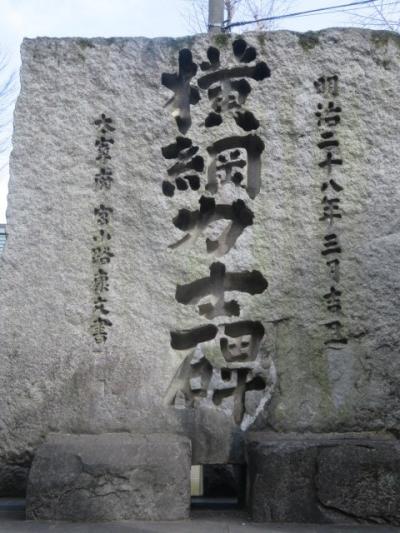 明治二十八年三月吉旦
横綱力士碑
太宰府 宮小路康文書